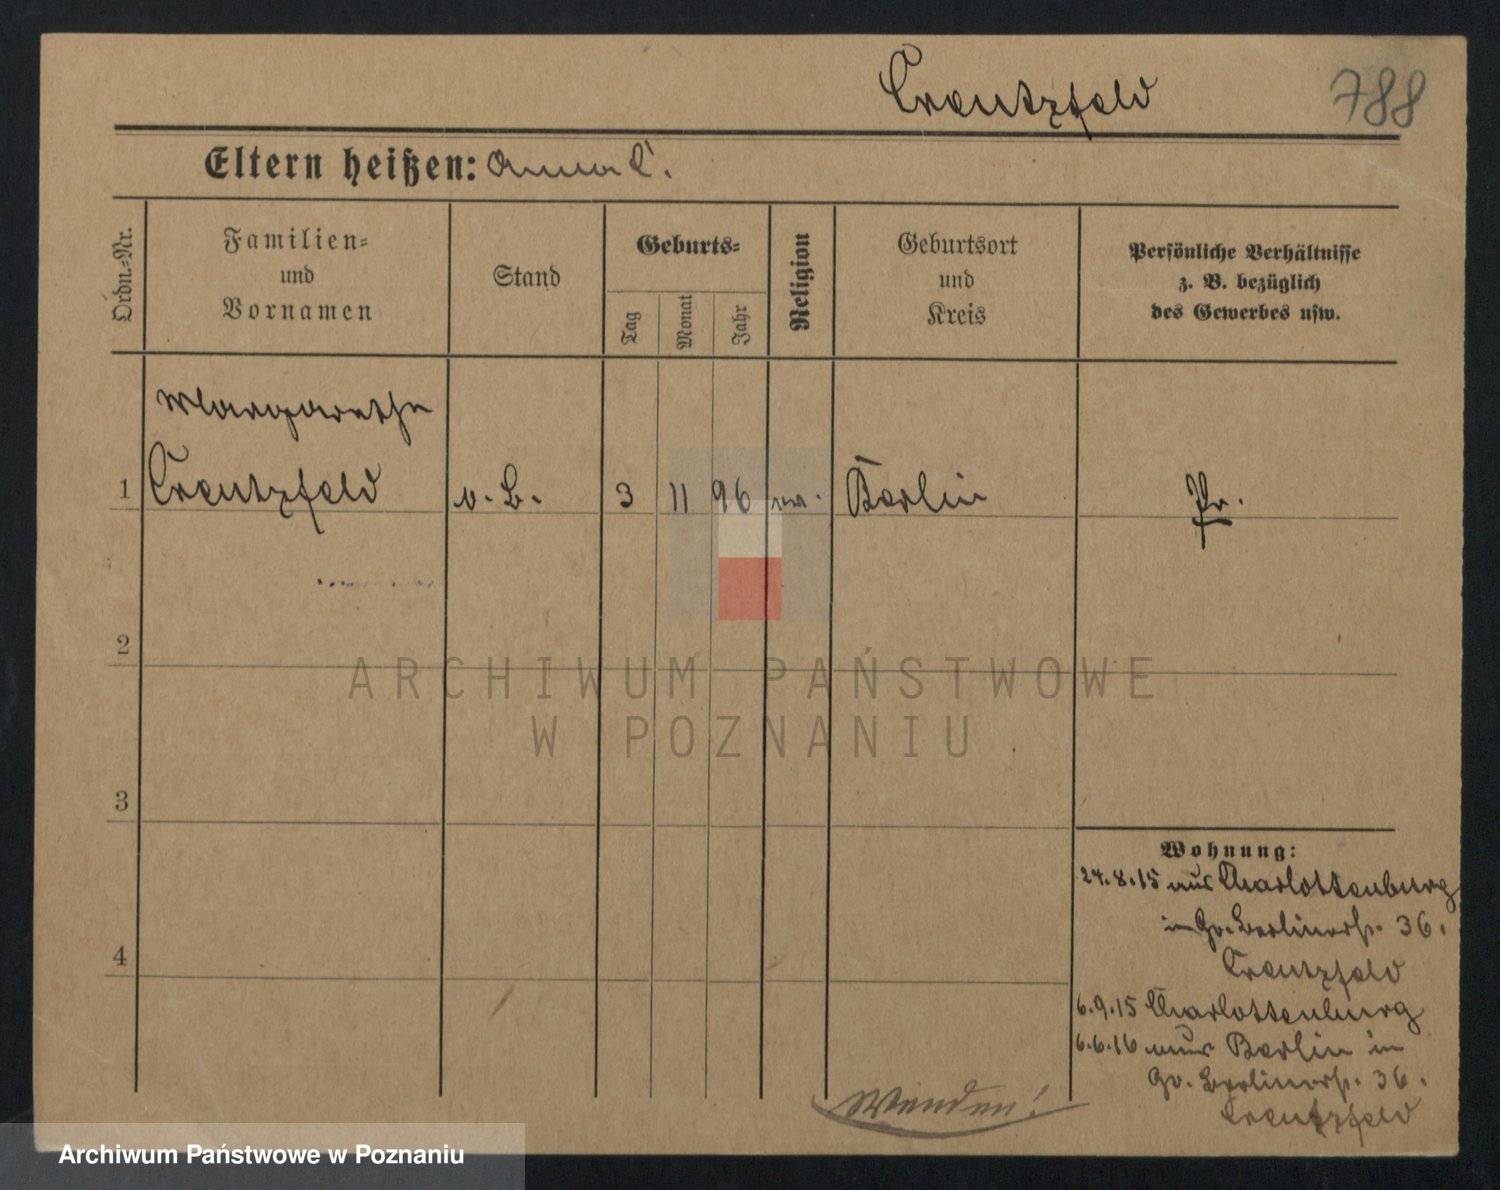 Creutzfeld
788
Eltern heißen: Anna C.
Ordn.-Nr.
Familien-
und
Vornamen
Stand
Geburts-
Tag
Monat
Jahr
Religion
Geburtsort
und
Kreis
Persönliche Verhältnisse
z. B. bezüglich
des Gewerbes usw.
Margarethe
1 Creutzfeld o. B. 3 11 96 ev. Berlin Pr.
2
3
4
Wohnung:
24.8.15 aus Charlottenburg
in Gr. Berlinerstr. 36.
Creutzfeld
6.9.15 Charlottenburg
6.6.16 aus Berlin in
Gr. Berlinerstr. 36.
Creutzfeld
Wenden!
ARCHIWUM PAŃSTWOWE
W POZNANIU
Archiwum Państwowe w Poznaniu